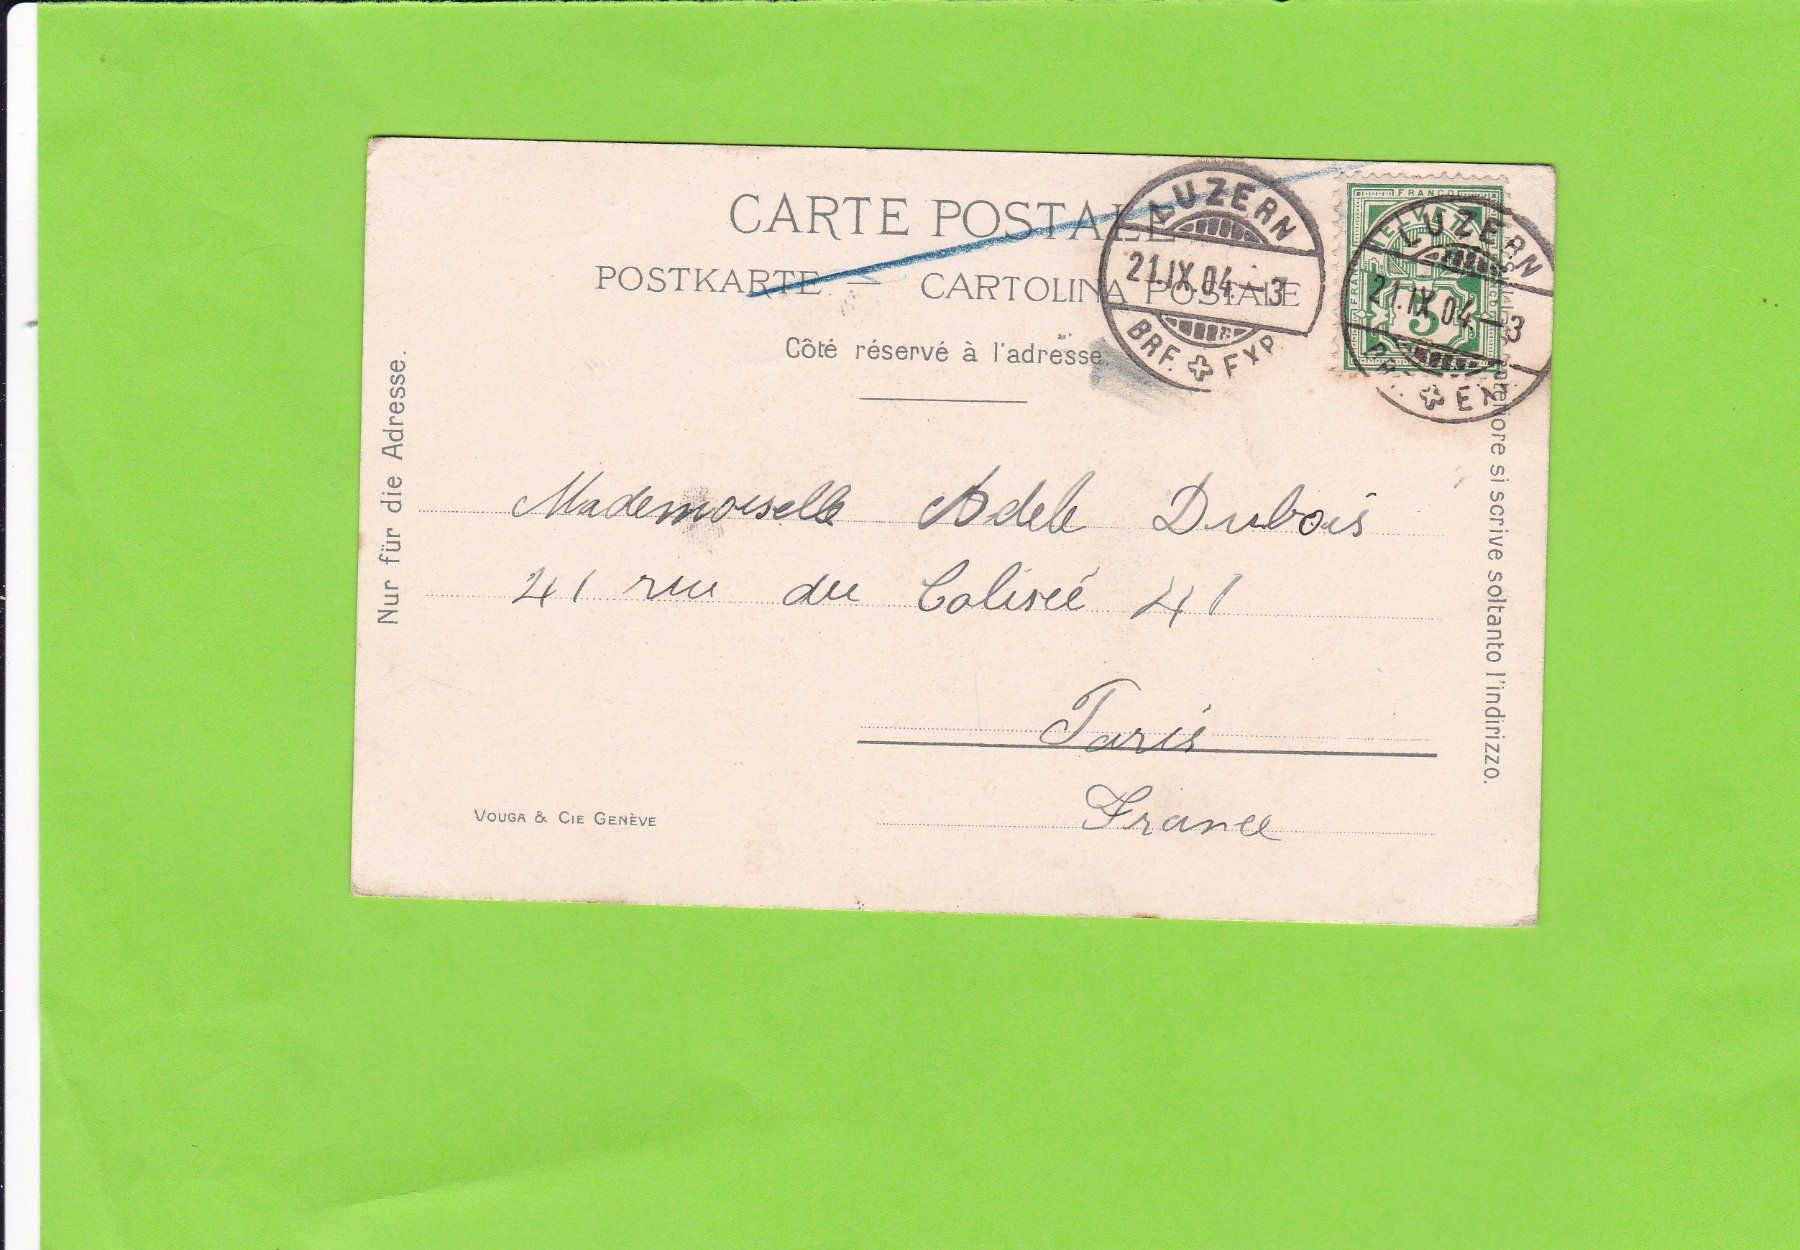 CARTE POSTALE
POSTKARTE — CARTOLINA POSTALE
Côté réservé à l'adresse.
Nur für die Adresse.
LUZERN
21.IX.04—3
BRF. EXP.
FRANCO
HELVETIA
5
LUZERN
21.IX.04—3
si scrive soltanto l'indirizzo.
Mademoiselle Adele Dubois
41 rue du Colisée 41
Paris
France
VOUGA & CIE GENÈVE